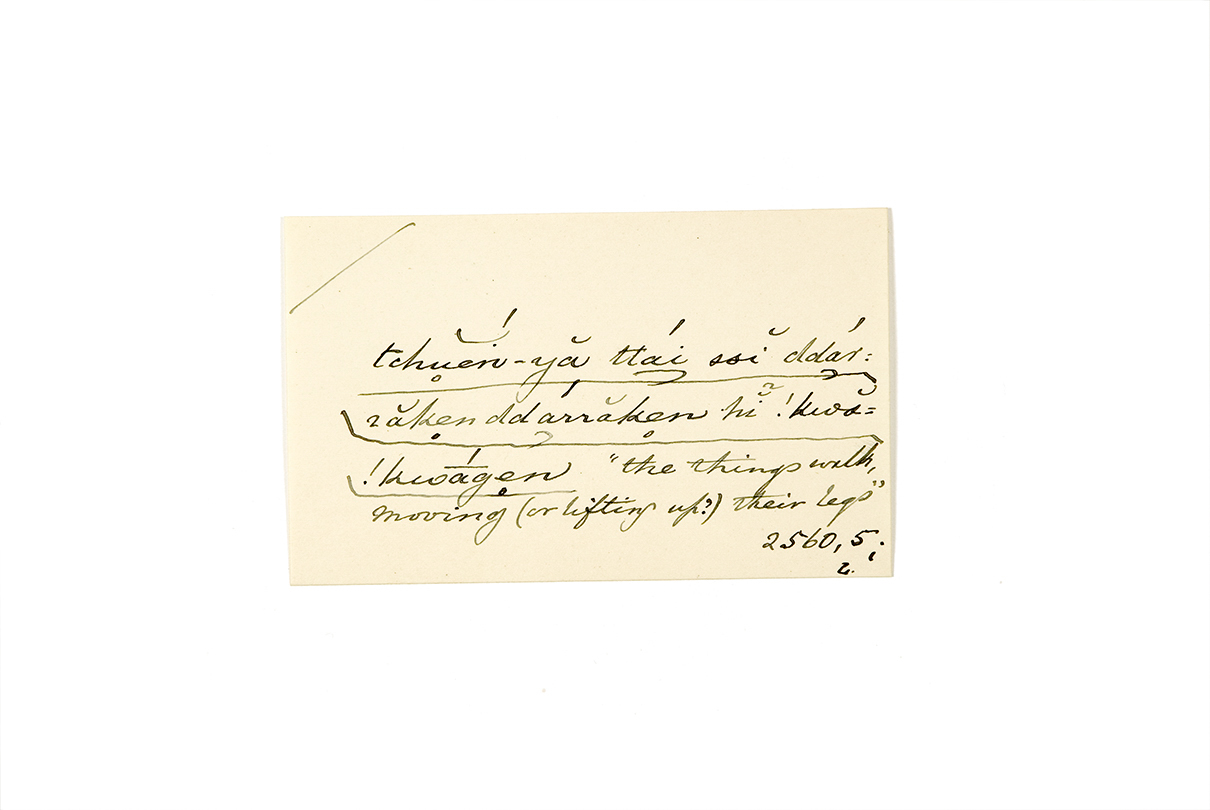 tchu̥ĕ́n-yă ttái ssĭ ddár=
răk̥en ddárrăk̥en hĭ̃ !kwă=
!kwā́g̥en "the things walk,
moving (or lifting up?) their legs"
2560, 5;